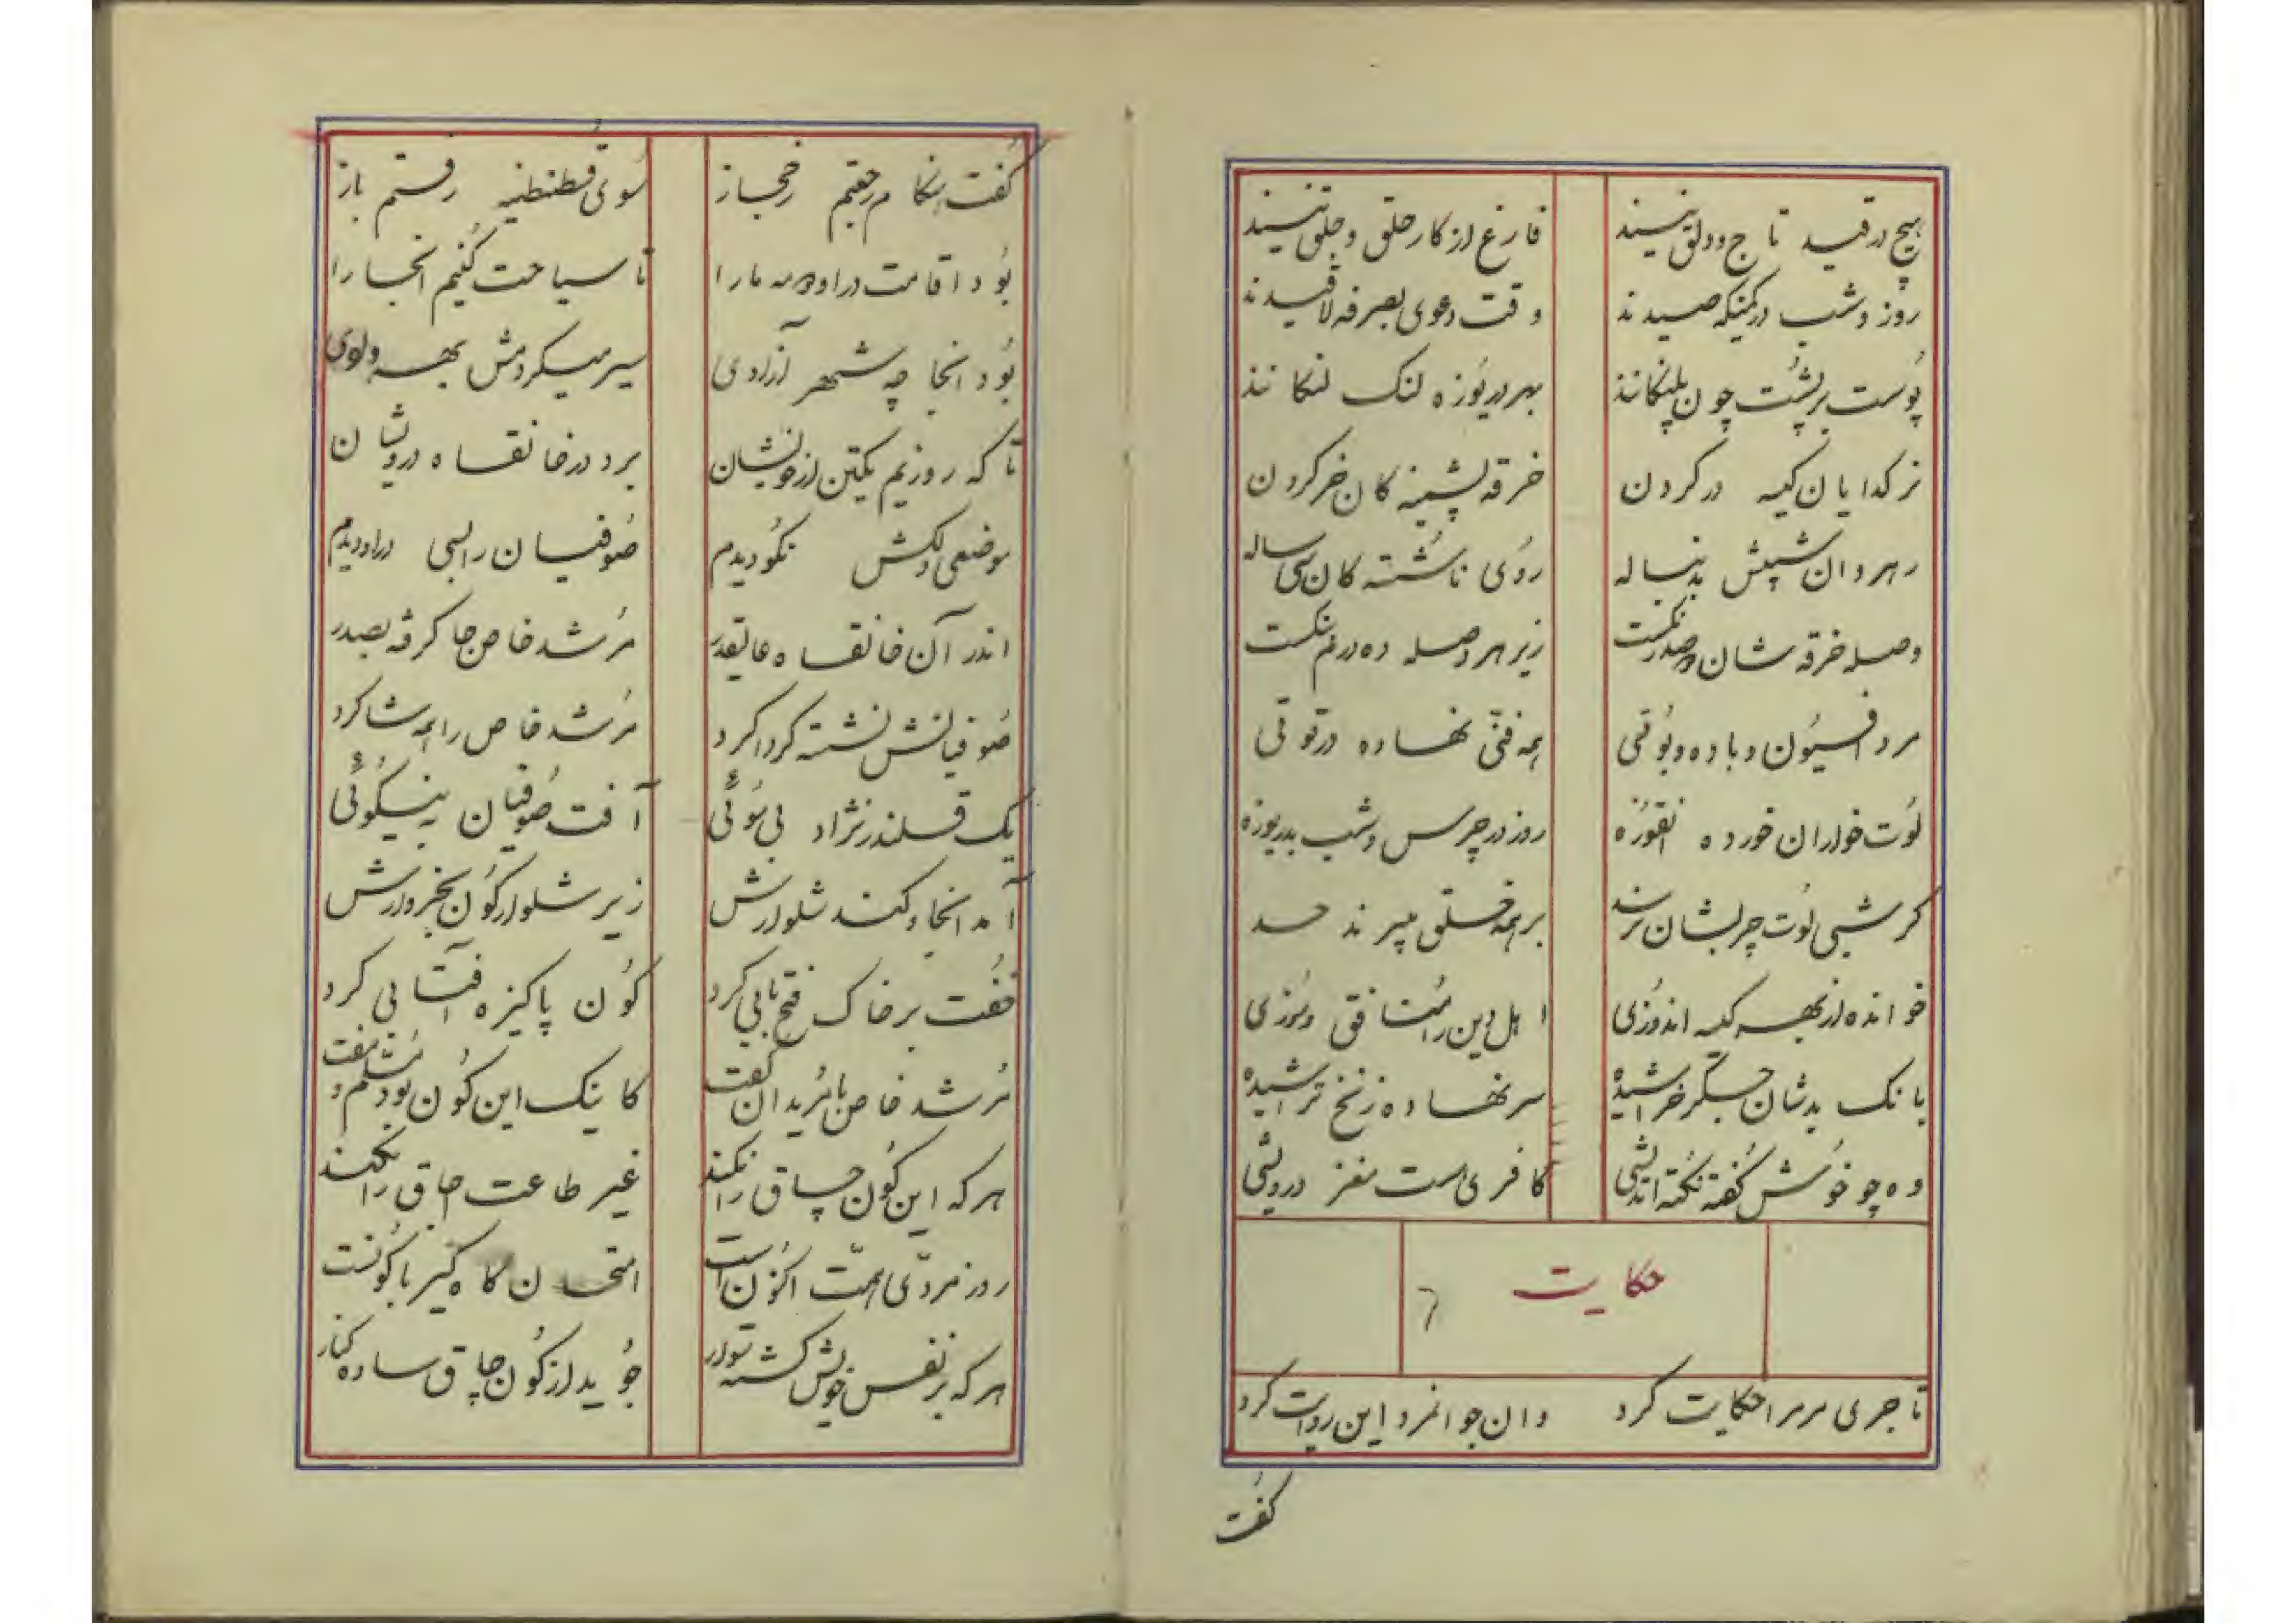 هیچ در قید تاج و دلق نیند فارغ از کار خلق و جلق نیند
روز و شب در کمینکه صیدند وقت دعوی بصرفه لاقیدند
پوست بر پشت چون پلنکانند بهر دریوزه لنک لنکانند
نر کدایان کیسه در کردن خرقه پشمینه کان خر کردن
رهروان شپش بدنباله روی ناشسته کان سی ساله
وصله خرقه شان درم نکست زیر هر وصله ده درم نکست
مرد افسیون و باده و بوقی همه فنی نهاده در توقی
لوت خواران خورده نقوزه روز در چرس و شب بدریوزه
کر شبی لوت چربشان نرسد بر همه خلق میبرند حسد
خوانده از بهر کیسه اندوزی اهل دین را منافق و موزی
بانک بدشان جسکر خراشیده سر نهاده زنخ تراشیده
وه چو خوش کفته نکته اندیشی کافری است مغز درویشی
حکایت
تاجری مر مرا حکایت کرد وان جوانمرد این روایت کرد
کفت
کفت هنکام رفتم زحجاز سوی قسطنطنیه رفتم باز
بود اقامت در او دو مه مارا تا سیاحت کنیم انجا را
بود انجا چه شهر آزادی سیر میکردمش بهر وادی
تا که روزیم یکتن از خویشان برد در خانقاه درویشان
موضعی دلکش نکو دیدم صوفیان را بسی در او دیدم
اندر آن خانقاه عالیقدر مرشد خاص جا کرفه بصدر
صوفیانش نشسته کرداکرد مرشد خاص را همه شاکرد
یک قلندر نژاد بی سوئی آفت صوفیان به نیکوئی
آمد انجا و کند شلوارش زیر شلوار کون بخروارش
خفت بر خاک فتح بابی کرد کون پاکیزه آفتابی کرد
مرشد خاص با مریدان کفت کاینک این کون بود مسلم و مفت
هر که این کون چاق را نکند غیر طاعت چاق را نکند
روز مردی و همت اکنون است امتحان کاه کیر با کونست
هر که بر نفس خویش کشته سوار جوید از کون چاق ساده کنار